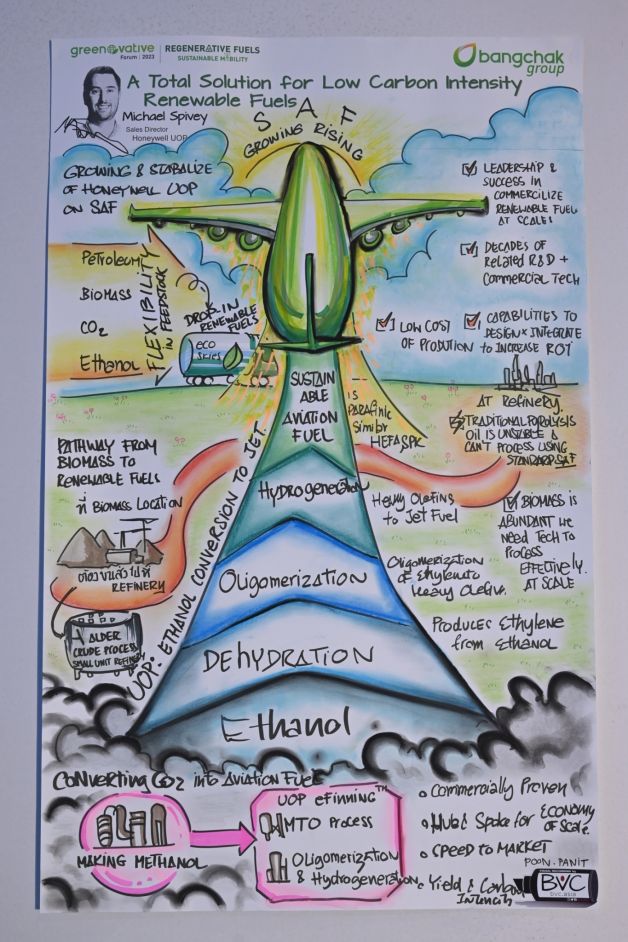 greenovative
Forum | 2023
REGENERATIVE FUELS
SUSTAINABLE MOBILITY
bangchak
group
A Total Solution for Low Carbon Intensity
Renewable Fuels
Michael Spivey
Sales Director
Honeywell UOP
SAF
GROWING RISING
GROWING & STABALIZE
OF HONEYWELL UOP
ON SAF
LEADERSHIP &
SUCCESS IN
COMMERCILIZE
RENEWABLE FUEL
AT SCALE!
DECADES OF
RELATED R&D +
COMMERCIAL TECH
CAPABILITIES TO
DESIGN & INTEGRATE
to INCREASE ROI
LOW COST
OF PRODUTION
Petroleum
BIOMASS
CO2
Ethanol
FLEXIBILITY
IN FEEDSTOCK
DROP-IN
RENEWABLE
FUELS
ECO
SKIES
SUSTAIN
ABLE
AVIATION
FUEL
IS
PARAFINIC
SIMILAR
HEFA SPK
AT REFINERY.
TRADITIONAL PYROLYSIS
OIL IS UNSTABLE &
CAN'T PROCESS USING
STANDARD SAF
PATHWAY FROM
BIOMASS TO
RENEWABLE FUELS
ที่ BIOMASS LOCATION
REFINERY
ALDER
CRUDE PROCESS
SMALL UNIT REFINERY
UOP: ETHANOL CONVERSION TO JET
Hydrogeneration
Heavy Olefins
to Jet Fuel
BIOMASS IS
ABUNDANT WE
NEED TECH TO
PROCESS
EFFECTIVELY.
AT SCALE
Oligomerization
Oligomerization
of Ethylene to
Heavy Olefins.
DEHYDRATION
Produces Ethylene
from Ethanol
Ethanol
Converting CO2 into Aviation Fuel
MAKING METHANOL
UOP eFining™
MTO Process
Oligomerization
& Hydrogeneration
Commercially Proven
Hub & Spoke for Economy
of Scale
SPEED TO MARKET
Yield & Carbon
Intencity
POON.PANIT
BVC
bvc.asia